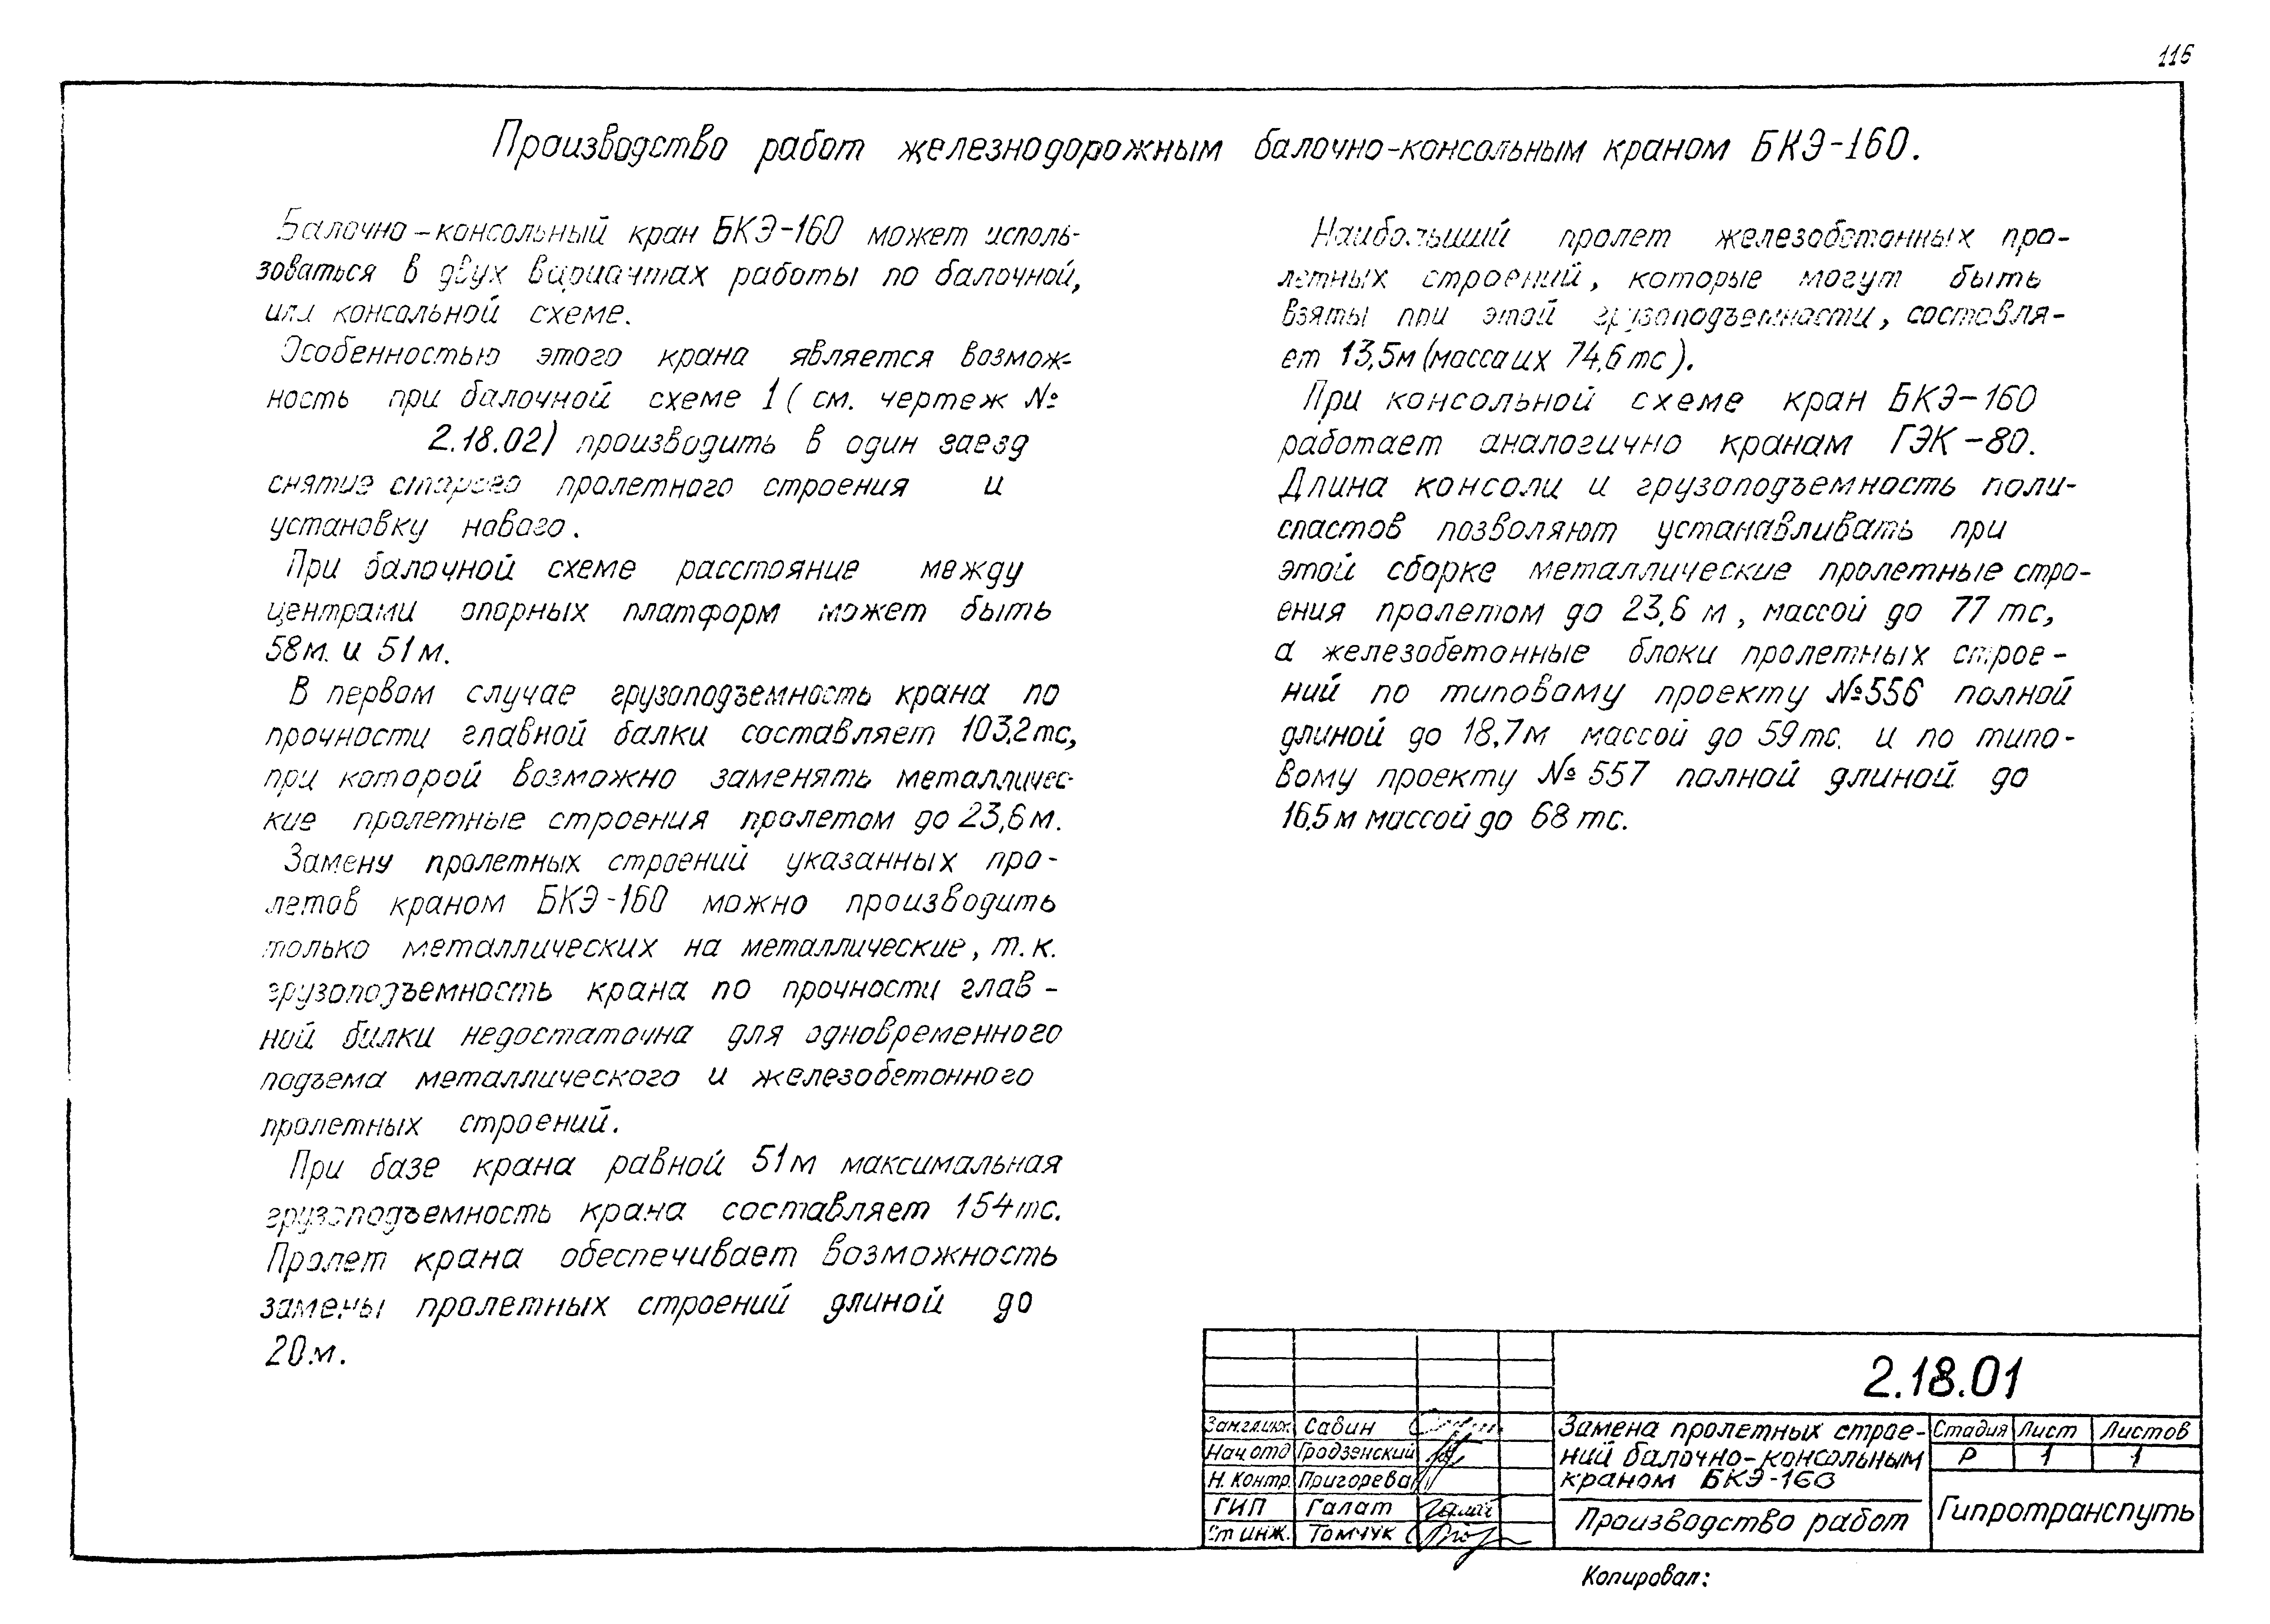 116
Производство работ железнодорожным балочно-консольным краном БКЭ-160.
Балочно-консольный кран БКЭ-160 может исполь-
зоваться в двух вариантах работы по балочной,
или консольной схеме.
Особенностью этого крана является возмож-
ность при балочной схеме 1 (см. чертеж №
2.18.02) производить в один заезд
снятие старого пролетного строения и
установку нового.
При балочной схеме расстояние между
центрами опорных платформ может быть
58м. и 51м.
В первом случае грузоподъемность крана по
прочности главной балки составляет 103,2тс,
при которой возможно заменять металличес-
кие пролетные строения пролетом до 23,6м.
Замену пролетных строений указанных про-
летов краном БКЭ-160 можно производить
только металлических на металлические, т.к.
грузоподъемность крана по прочности глав-
ной балки недостаточна для одновременного
подъема металлического и железобетонного
пролетных строений.
При базе крана равной 51м максимальная
грузоподъемность крана составляет 154тс.
Пролет крана обеспечивает возможность
замены пролетных строений длиной до
20м.
Наибольший пролет железобетонных про-
летных строений, которые могут быть
взяты при этой грузоподъемности, составля-
ет 13,5м (масса их 74,6тс).
При консольной схеме кран БКЭ-160
работает аналогично кранам ГЭК-80.
Длина консоли и грузоподъемность поли-
спастов позволяют устанавливать при
этой сборке металлические пролетные стро-
ения пролетом до 23,6 м, массой до 77 тс,
а железобетонные блоки пролетных строе-
ний по типовому проекту №556 полной
длиной до 18,7м массой до 59тс. и по типо-
вому проекту № 557 полной длиной до
16,5м массой до 68 тс.
2.18.01
Зам.гл.инж. Савин
Нач.отд Гродзенский
Н. Контр. Пригорева
ГИП Галат
Ст инж. Томчук
Замена пролетных строе-
ний балочно-консольным
краном БКЭ-160
Производство работ
Стадия Лист Листов
Р 1 1
Гипротранспуть
Копировал: